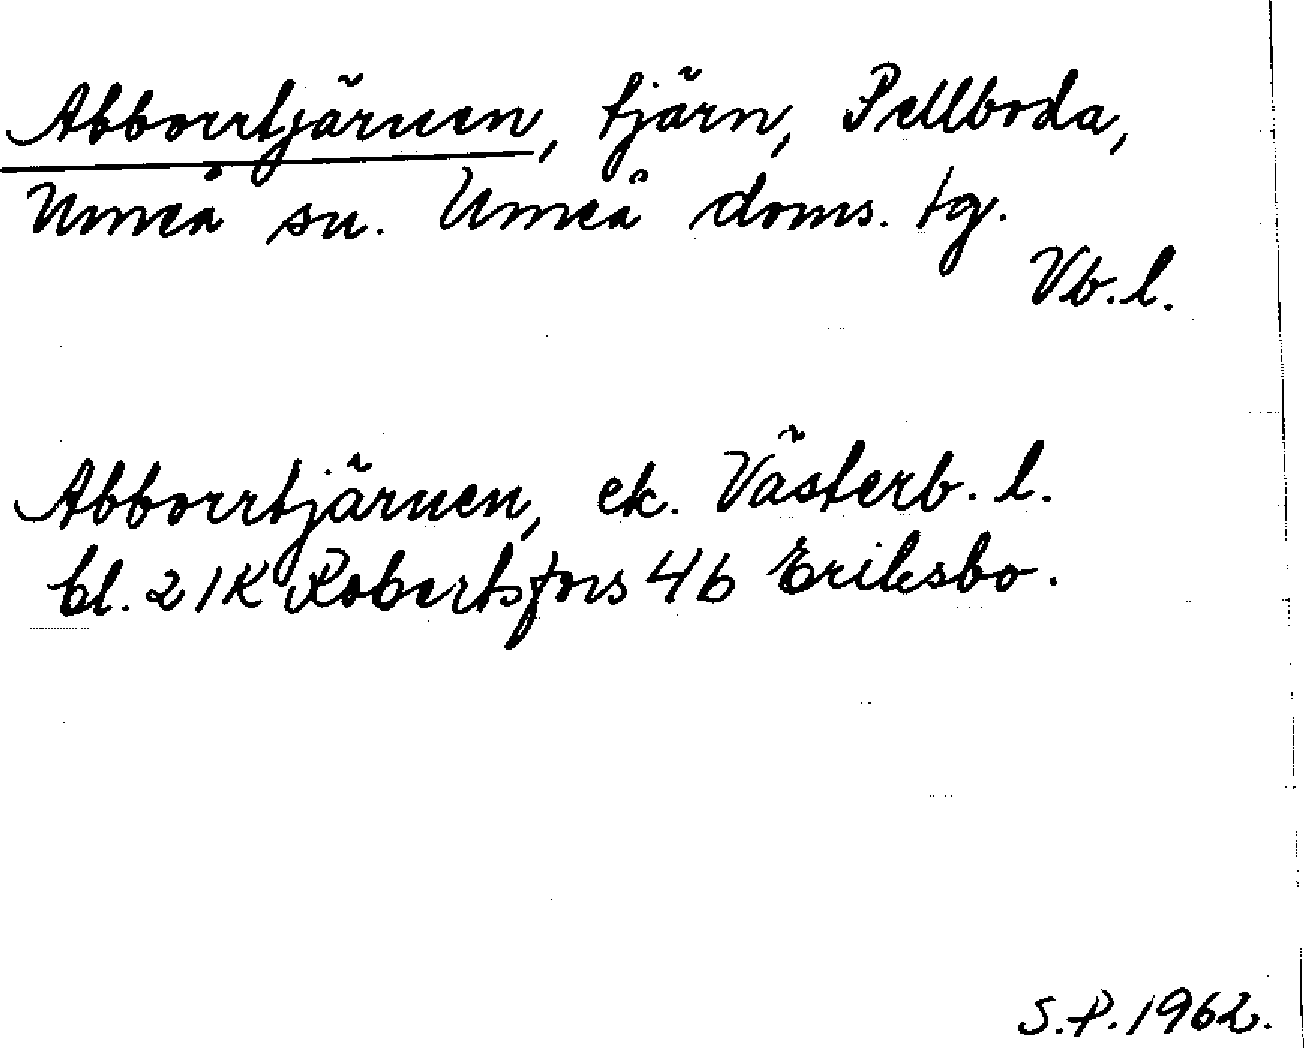 Abborrtjärnen, tjärn, Pellboda,
Umeå sn. Umeå doms. tg.
Vb. l.
Abborrtjärnen, ek. Västerb. l.
bl. 21K Robertsfors 4b Eriksbo.
S.P. 1962.